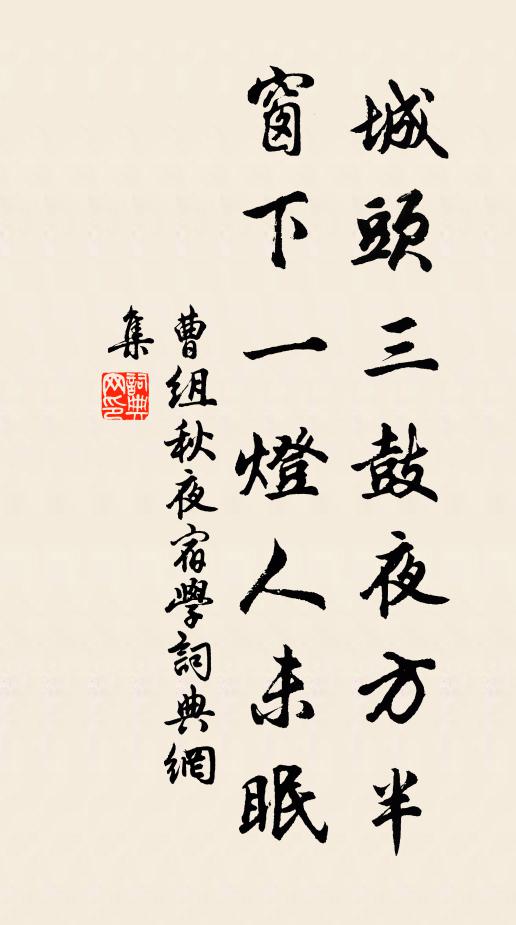 城頭三鼓夜方半
窗下一燈人未眠
曹組秋夜宿學詞典網
集
詞典网印